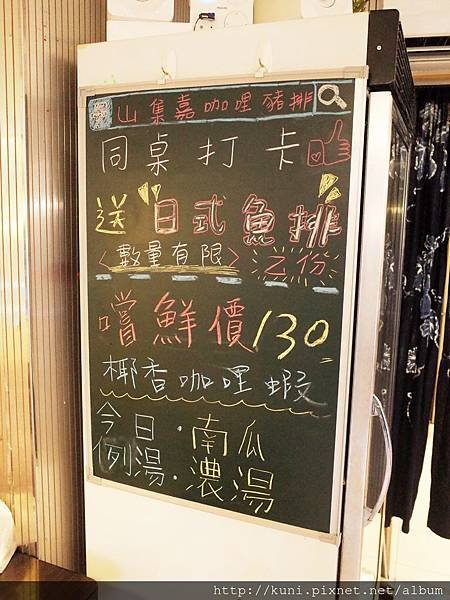 山集嘉咖哩豬排
同桌打卡
送日式魚排
<數量有限> 乙份
嚐鮮價130
椰香咖哩蝦
今日 · 南瓜
例湯 · 濃湯
http://kuni.pixnet.net/album